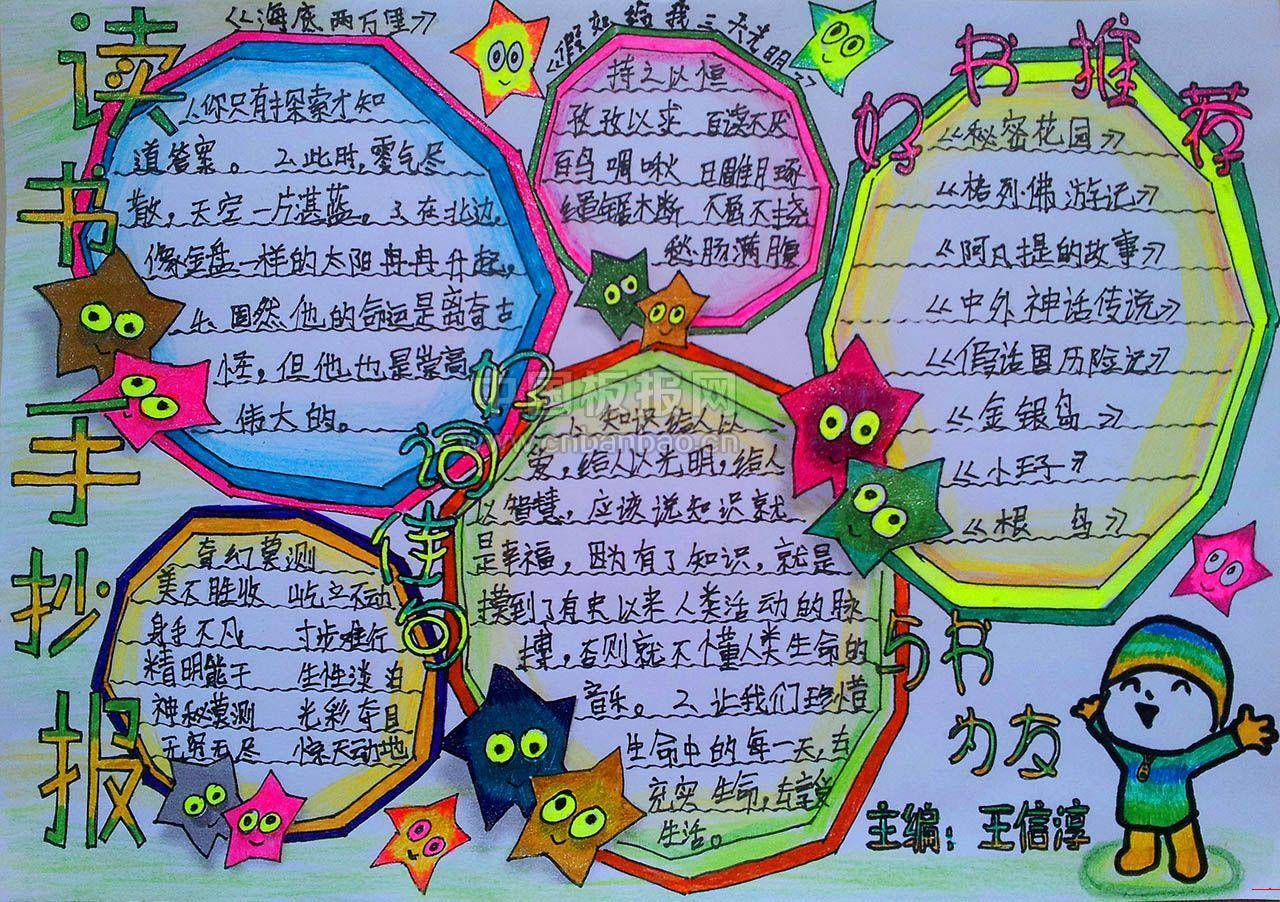 读书手抄报
《海底两万里》
1、你只有探索才知
道答案。2、此时,雾气尽
散,天空一片湛蓝。3、在北边,
像金盘一样的太阳冉冉升起,
4、固然他的命运是离奇古
怪,但他也是崇高
伟大的。
《假如给我三天光明》
持之以恒
孜孜以求 百读不厌
百鸟啁啾 日雕月琢
绳锯木断 不屈不挠
愁肠满腹
好书推荐
《秘密花园》
《格列佛游记》
《阿凡提的故事》
《中外神话传说》
《假话国历险记》
《金银岛》
《小王子》
《根鸟》
好词佳句
奇幻莫测
美不胜收 屹立不动
身手不凡 寸步难行
精明能干 生性淡泊
神秘莫测 光彩夺目
无穷无尽 惊天动地
1、知识给人以
爱,给人以光明,给人
以智慧,应该说知识就
是幸福,因为有了知识,就是
摸到了有史以来人类活动的脉
搏,否则就不懂人类生命的
音乐。2、让我们珍惜
生命中的每一天,去
充实生命,去享受
生活。
与书
为友
主编:王信淳
中国板报网
www.cnbanbao.cn